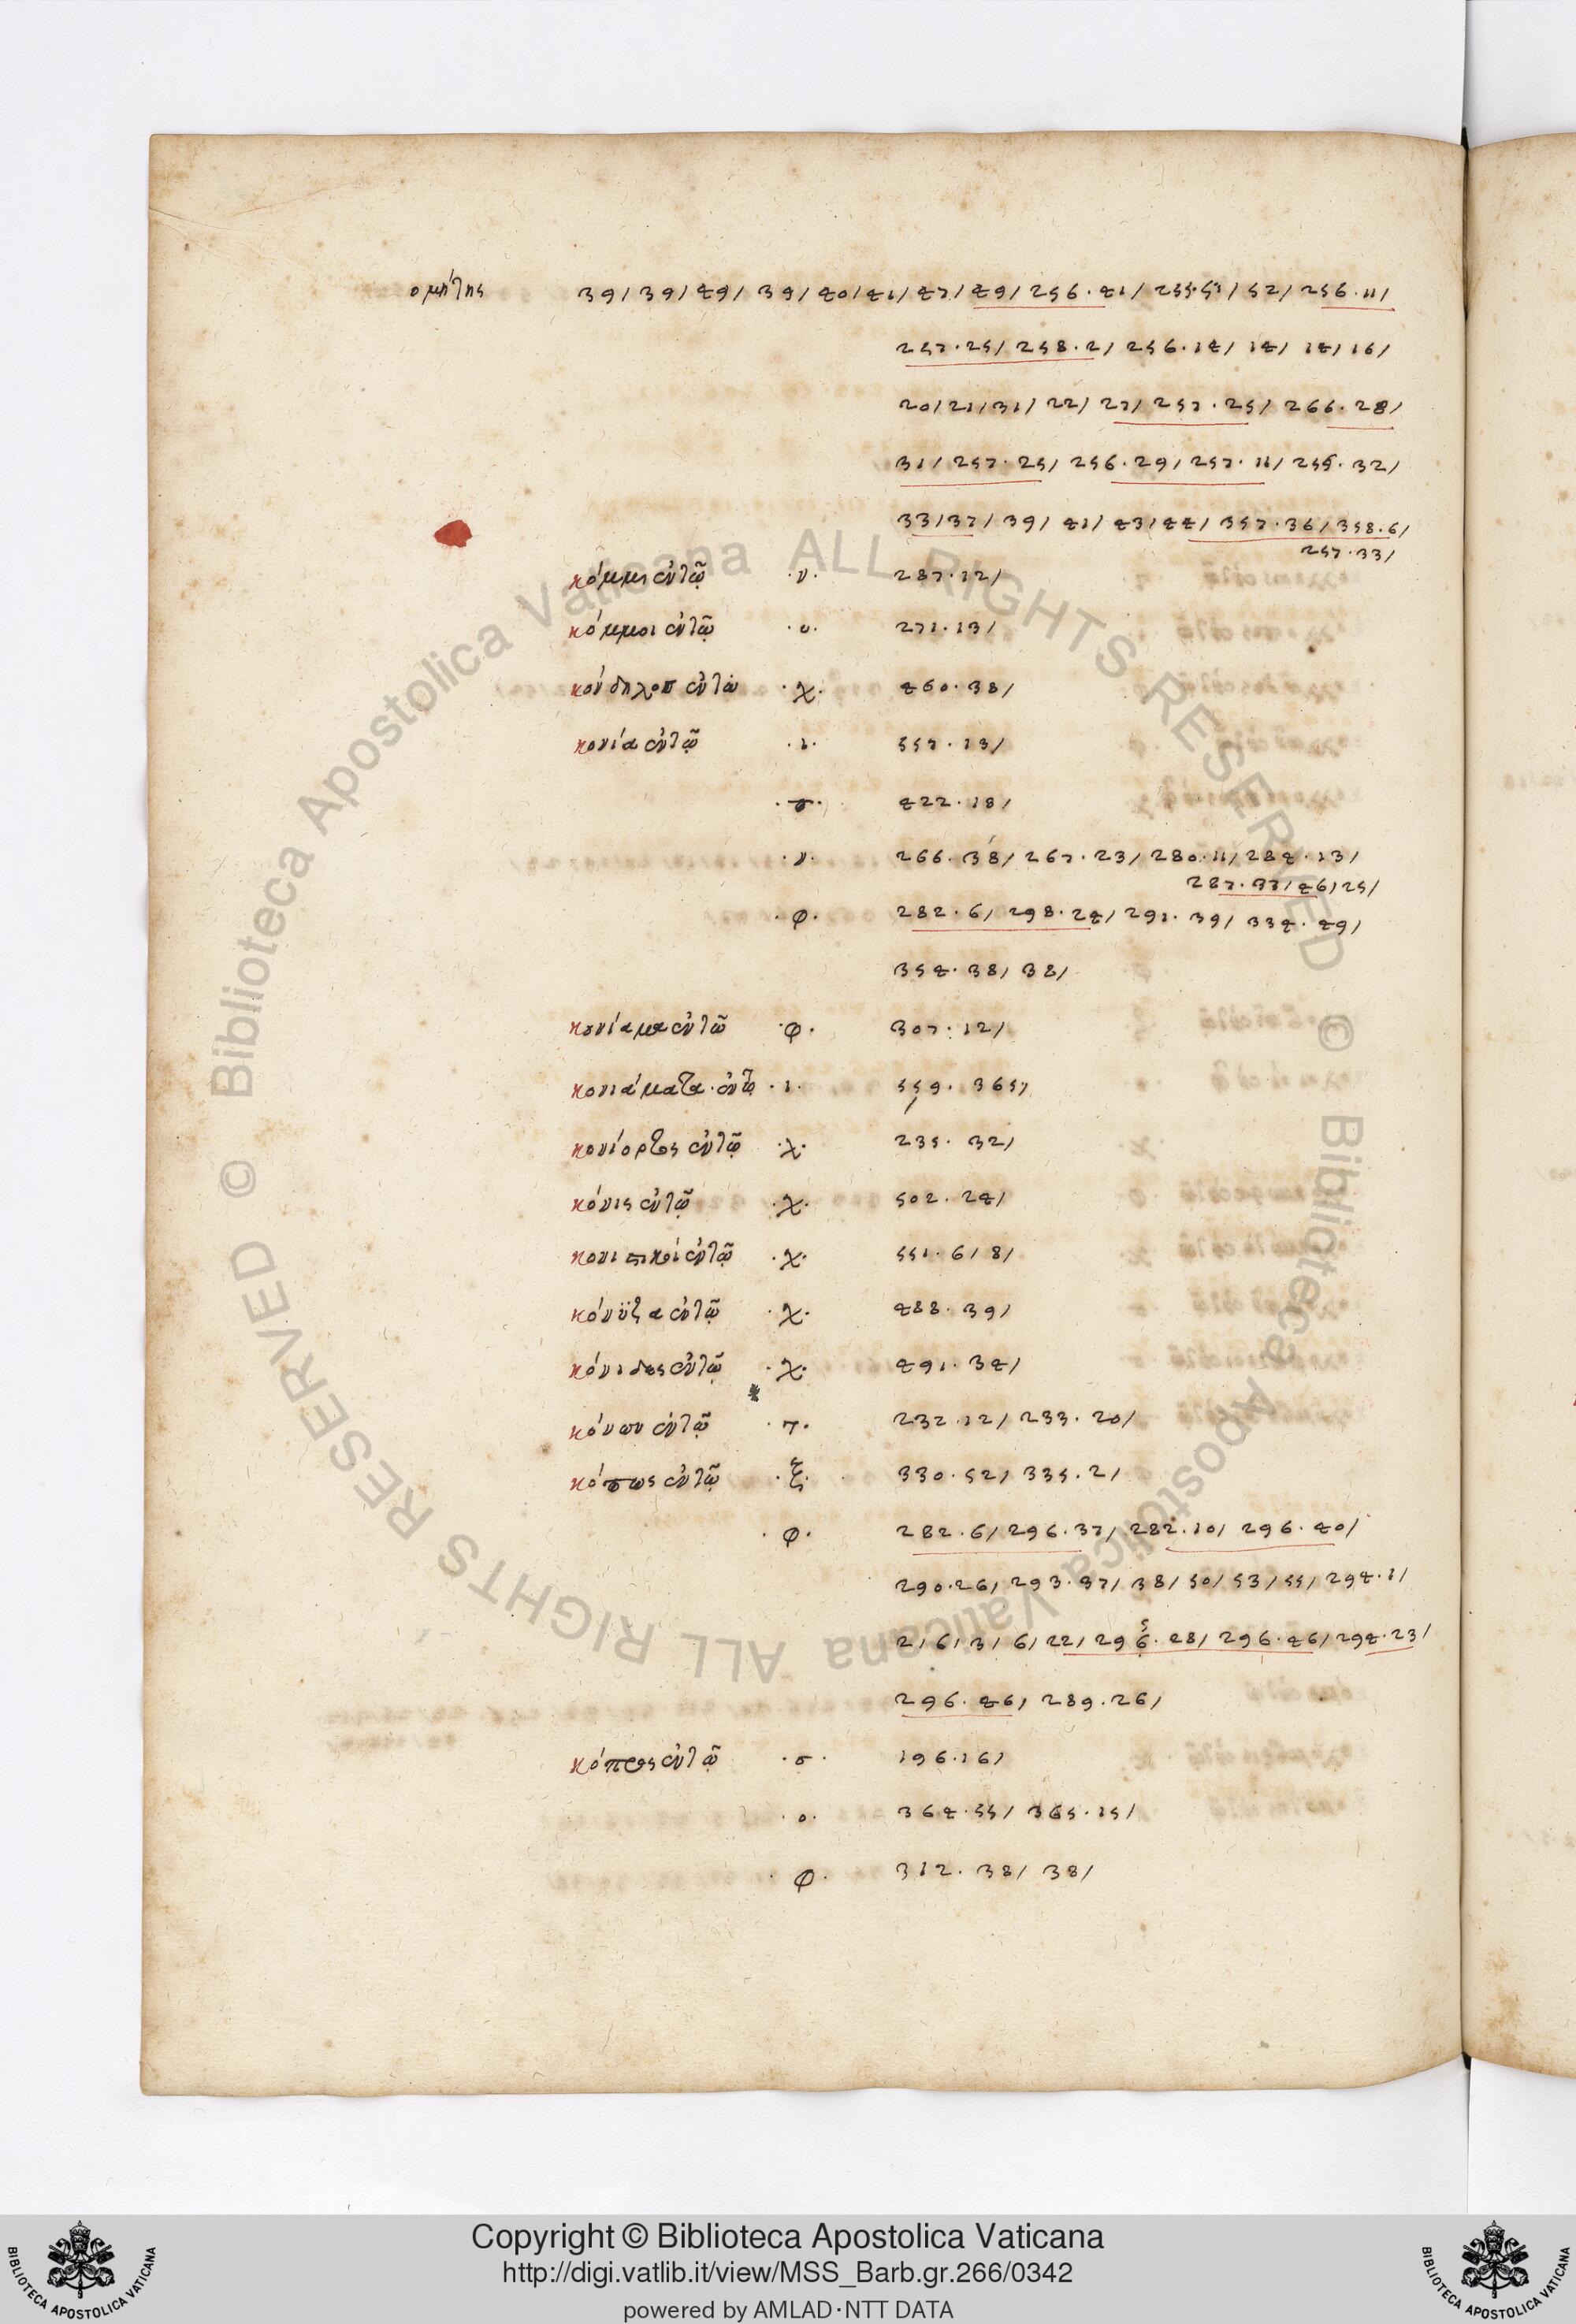 ομήτης 39/ 39/ 49/ 39/ 40/ 41/ 47/ 49/ 256.41/ 255.51/ 52/ 256.11/
257.25/ 258.2/ 256.14/ 14/ 14/ 16/
20/ 21/ 31/ 22/ 27/ 257.25/ 266.28/
31/ 257.25/ 256.29/ 257.11/ 255.32/
33/ 37/ 39/ 41/ 43/ 44/ 357.36/ 358.6/
257.33/
κόμμι ἐν τῷ .ν. 287.12/
κόμμοι ἐν τῷ .υ. 271.13/
ἐν τῷ .χ. 460.38/
κονία ἐν τῷ .ι. 557.13/
422.18/
.ν. 266.38/ 267.23/ 280.11/ 284.13/
287.37/ 46/ 25/
.φ. 282.6/ 298.24/ 291.39/ 334.49/
354.38/ 38/
κονίαμα ἐν τῷ .φ. 307.12/
κονιάματα . ἐν τῷ .ι. 559.
κονίορτος ἐν τῷ .χ. 235.32/
κόνις ἐν τῷ .χ. 502.24/
ἐν τῷ .χ. 551.6/ 8/
κόνϋζα ἐν τῷ .χ. 488.39/
κόνιδες ἐν τῷ .χ. 491.34/
κόνων ἐν τῷ .τ. 232.12/ 233.20/
κόπως ἐν τῷ .ξ. 330.52/ 335.2/
.φ. 282.6/ 296.37/ 282.10/ 296.40/
290.26/ 293.37/ 38/ 50/ 53/ 55/ 294.1/
2/ 6/ 3/ 6/ 22/ 296.28/ 296.46/ 294.23/
296.46/ 289.26/
κόπρος ἐν τῷ .σ. 196.16/
.ο. 364.55/ 365.15/
.φ. 312.38/ 38/
© Biblioteca Apostolica Vaticana ALL RIGHTS RESERVED
© Biblioteca Apostolica Vaticana ALL RIGHTS RESERVED
Copyright © Biblioteca Apostolica Vaticana
http://digi.vatlib.it/view/MSS_Barb.gr.266/0342
powered by AMLAD·NTT DATA
BIBLIOTECA APOSTOLICA VATICANA
BIBLIOTECA APOSTOLICA VATICANA